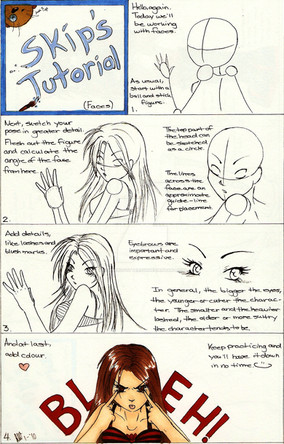 Skip's
Tutorial
(Faces)
Hello again.
Today we'll
be working
with faces.
As usual,
starts with a
ball and stick
figure.
1.
Next, sketch your
pose in greater detail.
Flesh out the figure
and calculate the
angle of the face
from here.
The top part of
the head can
be sketched
as a circle.
The lines
across the
face are an
approximate
guide-line
for placement.
2.
Add details,
like lashes and
blush marks.
Eyebrows are
important and
expressive.
In general, the bigger the eyes,
the younger or cuter the charac-
ter. The smaller and the heavier
lashed, the older or more sultry
the character tends to be.
3.
And at last,
add colour.
BLEH!
Keep practicing and
you'll have it down
in no time
4.